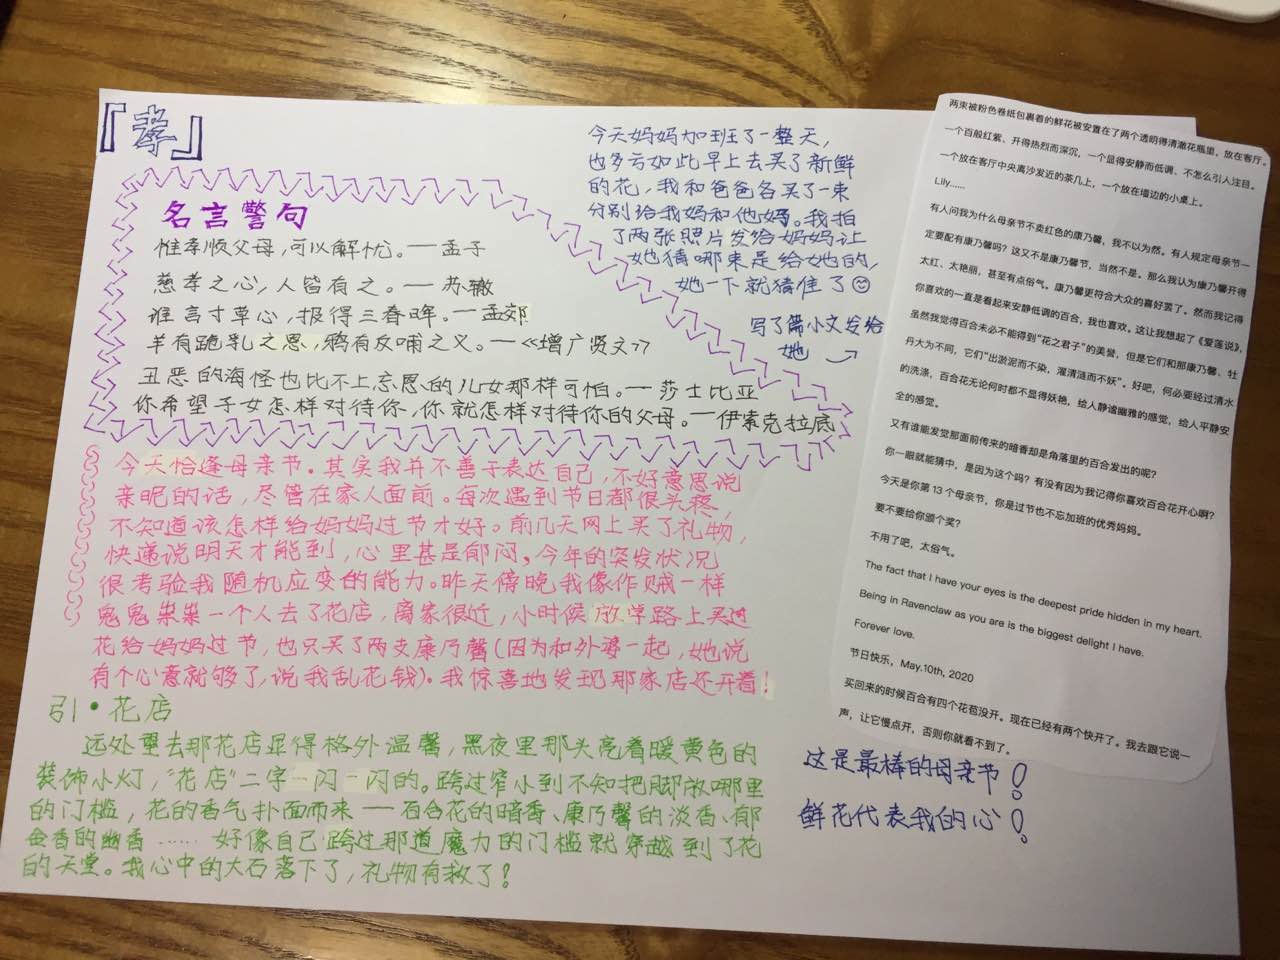 「孝」
名言警句
惟孝顺父母,可以解忧。——孟子
慈孝之心,人皆有之。——苏辙
谁言寸草心,报得三春晖。—孟郊
羊有跪乳之恩,鸦有反哺之义。—《增广贤文》
丑恶的海怪也比不上忘恩的儿女那样可怕。—莎士比亚
你希望子女怎样对待你,你就怎样对待你的父母。—伊索克拉底
今天恰逢母亲节。其实我并不善于表达自己,不好意思说
亲昵的话,尽管在家人面前。每次遇到节日都很头疼,
不知道该怎样给妈妈过节才好。前几天网上买了礼物,
快递说明天才能到,心里甚是郁闷。今年的突发状况
很考验我随机应变的能力。昨天傍晚我像作贼一样
鬼鬼祟祟一个人去了花店,离家很近,小时候放学路上买过
花给妈妈过节,也只买了两支康乃馨(因为和外婆一起,她说
有个心意就够了,说我乱花钱)。我惊喜地发现那家店还开着!
引·花店
远处望去那花店显得格外温馨,黑夜里那头亮着暖黄色的
装饰小灯,“花店”二字一闪一闪的。跨过窄小到不知把脚放哪里
的门槛,花的香气扑面而来——百合花的暗香、康乃馨的淡香、郁
金香的幽香……好像自己跨过那道魔力的门槛就穿越到了花
的天堂。我心中的大石落下了,礼物有救了!
今天妈妈加班了一整天,
也多亏如此早上去买了新鲜
的花,我和爸爸各买了一束
分别给我妈和他妈。我拍
了两张照片发给妈妈让
她猜哪束是给她的,
她一下就猜准了☺
写了篇小文发给
她 →
两束被粉色卷纸包裹着的鲜花被安置在了两个透明得清澈花瓶里,放在客厅。
一个百般红紫、开得热烈而深沉,一个显得安静而低调、不怎么引人注目。
一个放在客厅中央离沙发近的茶几上,一个放在墙边的小桌上。
Lily......
有人问我为什么母亲节不卖红色的康乃馨,我不以为然。有人规定母亲节一
定要配有康乃馨吗?这又不是康乃馨节,当然不是。那么我认为康乃馨开得
太红、太艳丽,甚至有点俗气。康乃馨更符合大众的喜好罢了。然而我记得
你喜欢的一直是看起来安静低调的百合,我也喜欢。这让我想起了《爱莲说》,
虽然我觉得百合未必不能得到“花之君子”的美誉,但是它们和那康乃馨、牡
丹大为不同,它们“出淤泥而不染,濯清涟而不妖”。好吧,何必要经过清水
的洗涤,百合花无论何时都不显得妖艳,给人静谧幽雅的感觉,给人平静安
全的感觉。
又有谁能发觉那面前传来的暗香却是角落里的百合发出的呢?
你一眼就能猜中,是因为这个吗?有没有因为我记得你喜欢百合花开心啊?
今天是你第13个母亲节,你是过节也不忘加班的优秀妈妈。
要不要给你颁个奖?
不用了吧,太俗气。
The fact that I have your eyes is the deepest pride hidden in my heart.
Being in Ravenclaw as you are is the biggest delight I have.
Forever love.
节日快乐,May.10th, 2020
买回来的时候百合有四个花苞没开。现在已经有两个快开了。我去跟它说一
声,让它慢点开,否则你就看不到了。
这是最棒的母亲节!
鲜花代表我的心!